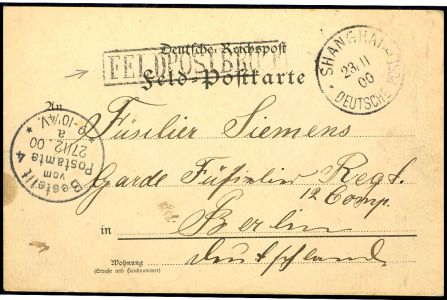 Deutsche Reichspost
FELDPOSTBRIEF
Feld-Postkarte
SHANGHAI
DEUTSCHE POST
23/11
00
An
Füsilier Siemens
Garde Füsilier Regt.
12 Comp.
in Berlin
Deutschland
Wohnung
(Straße und Hausnummer)
Bestellt
vom
Postamte 4
27/12 00
9-10¼V.